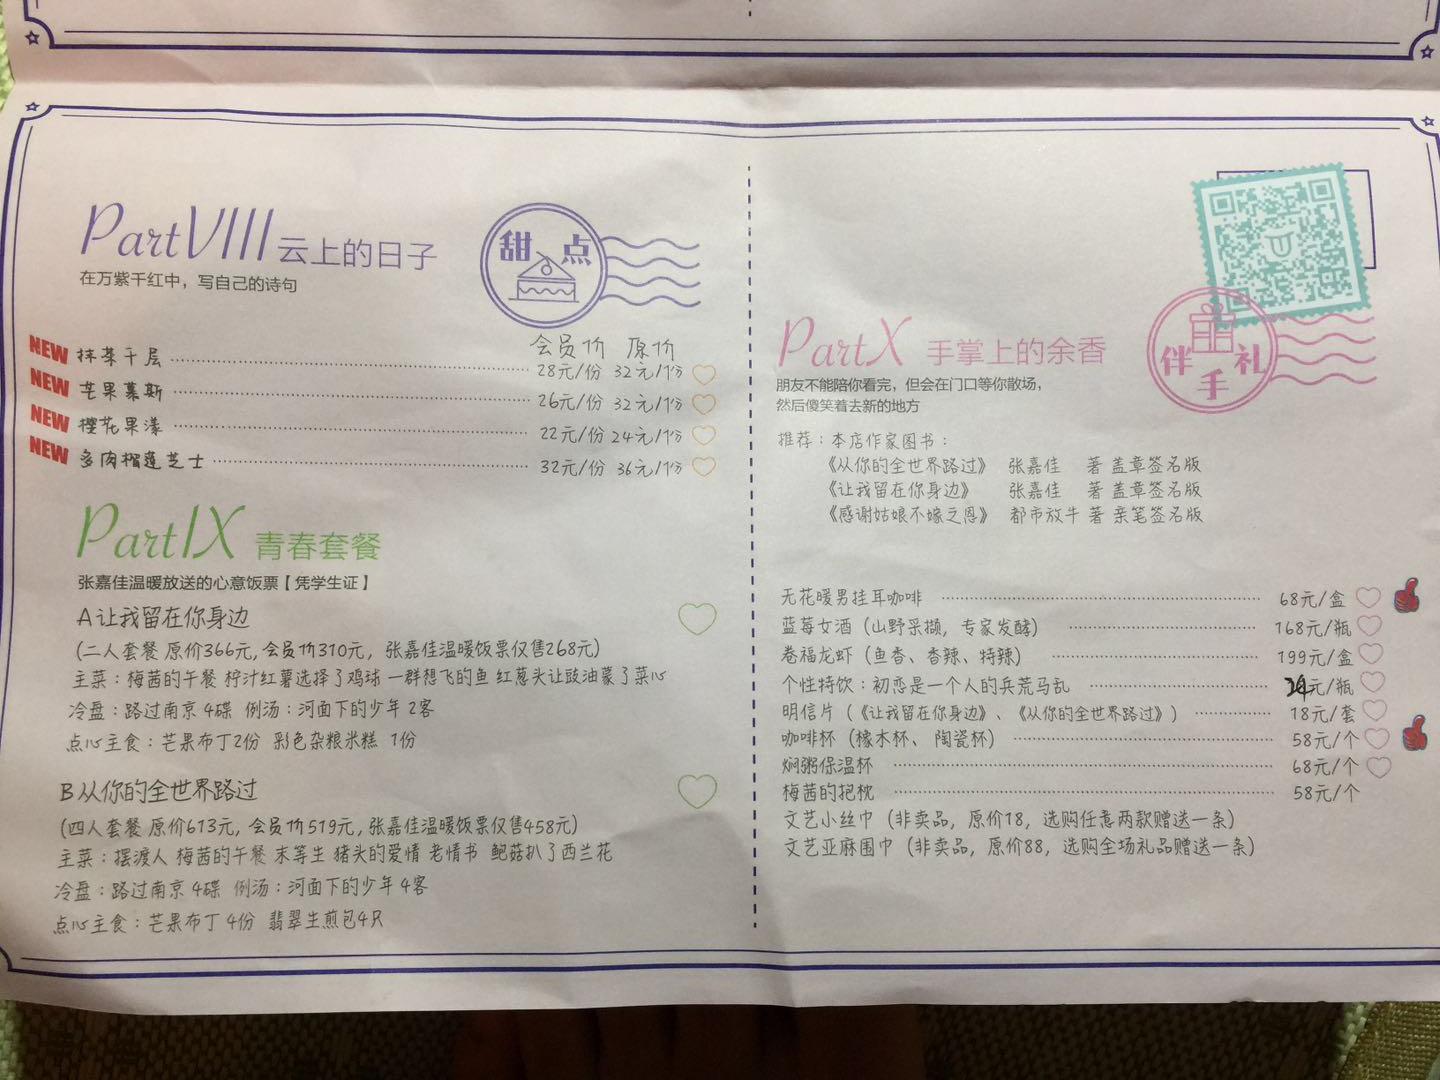 PartVIII 云上的日子
在万紫千红中，写自己的诗句
甜 点
会员价 原价
NEW 抹茶千层 28元/份 32元/份
NEW 芒果慕斯 26元/份 32元/份
NEW 樱花果漾 22元/份 24元/份
NEW 多肉榴莲芝士 32元/份 36元/份
PartIX 青春套餐
张嘉佳温暖放送的心意饭票【凭学生证】
A 让我留在你身边
(二人套餐 原价366元, 会员价310元, 张嘉佳温暖饭票仅售268元)
主菜：梅茜的午餐 柠汁红薯选择了鸡球 一群想飞的鱼 红葱头让豉油蒙了菜心
冷盘：路过南京 4碟 例汤：河面下的少年 2客
点心主食：芒果布丁2份 彩色杂粮米糕 1份
B 从你的全世界路过
(四人套餐 原价613元, 会员价519元, 张嘉佳温暖饭票仅售458元)
主菜：摆渡人 梅茜的午餐 末等生 猪头的爱情 老情书 鲍菇扒了西兰花
冷盘：路过南京 4碟 例汤：河面下的少年 4客
点心主食：芒果布丁 4份 翡翠生煎包4只
PartX 手掌上的余香
伴手礼
朋友不能陪你看完，但会在门口等你散场，
然后傻笑着去新的地方
推荐：本店作家图书：
《从你的全世界路过》 张嘉佳 著 盖章签名版
《让我留在你身边》 张嘉佳 著 盖章签名版
《感谢姑娘不嫁之恩》 都市放牛 著 亲笔签名版
无花暖男挂耳咖啡 68元/盒
蓝莓女酒 (山野采撷，专家发酵) 168元/瓶
卷福龙虾 (鱼香、香辣、特辣) 199元/盒
个性特饮：初恋是一个人的兵荒马乱 元/瓶
明信片 (《让我留在你身边》、《从你的全世界路过》) 18元/套
咖啡杯 (橡木杯、陶瓷杯) 58元/个
焖粥保温杯 68元/个
梅茜的抱枕 58元/个
文艺小丝巾 (非卖品，原价18，选购任意两款赠送一条)
文艺亚麻围巾 (非卖品，原价88，选购全场礼品赠送一条)